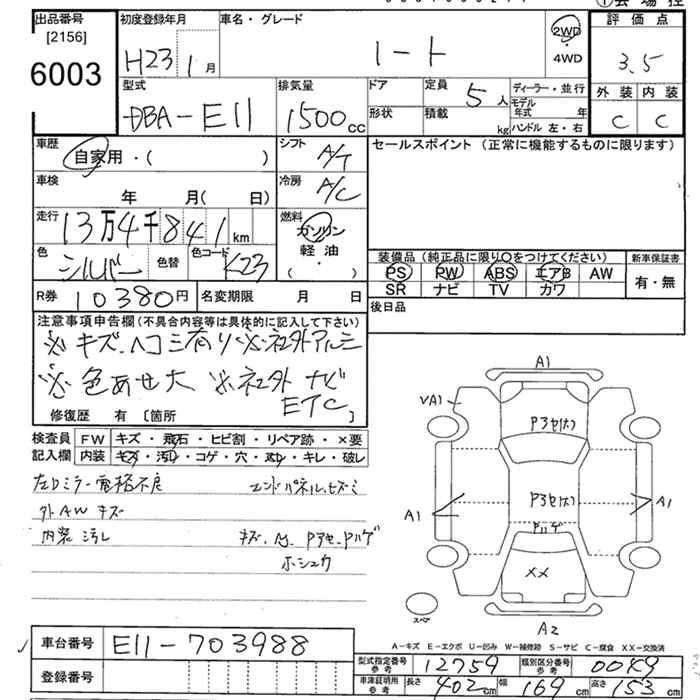 出品番号
[2156]
6003
初度登録年月
H23 1月
車名・グレード
ノート
2WD
・
4WD
評価点
3.5
外装 内装
C C
型式
DBA-E11
排気量
1500cc
ドア
定員
5人
形状
積載
kg
ディーラー・並行
モデル
年式 年
ハンドル 左・右
車歴
自家用・( )
シフト
A/T
セールスポイント (正常に機能するものに限ります)
車検
年 月( 日)
冷房
A/C
走行
13万4千841km
燃料
ガソリン
軽油
・
( )
色
シルバー
色替
色コード
K23
装備品 (純正品に限り○をつけてください)
新車保証書
PS PW ABS エアB AW
有・無
SR ナビ TV カワ
R券 10380円
名変期限 月 日
後日品
注意事項申告欄 (不具合内容等は具体的に記入して下さい)
※キズ、ヘコミ有り ※社外アルミ
※色あせ大 ※社外ナビ
ETC
修復歴 有 〔箇所
検査員 FW キズ・飛石・ヒビ割・リペア跡・×要
記入欄 内装 キズ・汚れ・コゲ・穴・ヌレ・キレ・破レ
左ドミラー電格不良 エンドパネル、ヒズミ
外AW キズ
内装 汚レ
ホシュウ
A1
VA1
P3セ(大)
A1
P3セ(大)
A1
Pハゲ
××
スペア
A2
A-キズ E-エクボ U-凹み W-補修跡 S-サビ C-腐食 XX-交換済
車台番号 E11-703988
登録番号
型式指定番号
参考
12759
類別区分番号
参考
0049
車庫証明用
参考
長さ 402cm 幅 169cm 高さ 153cm